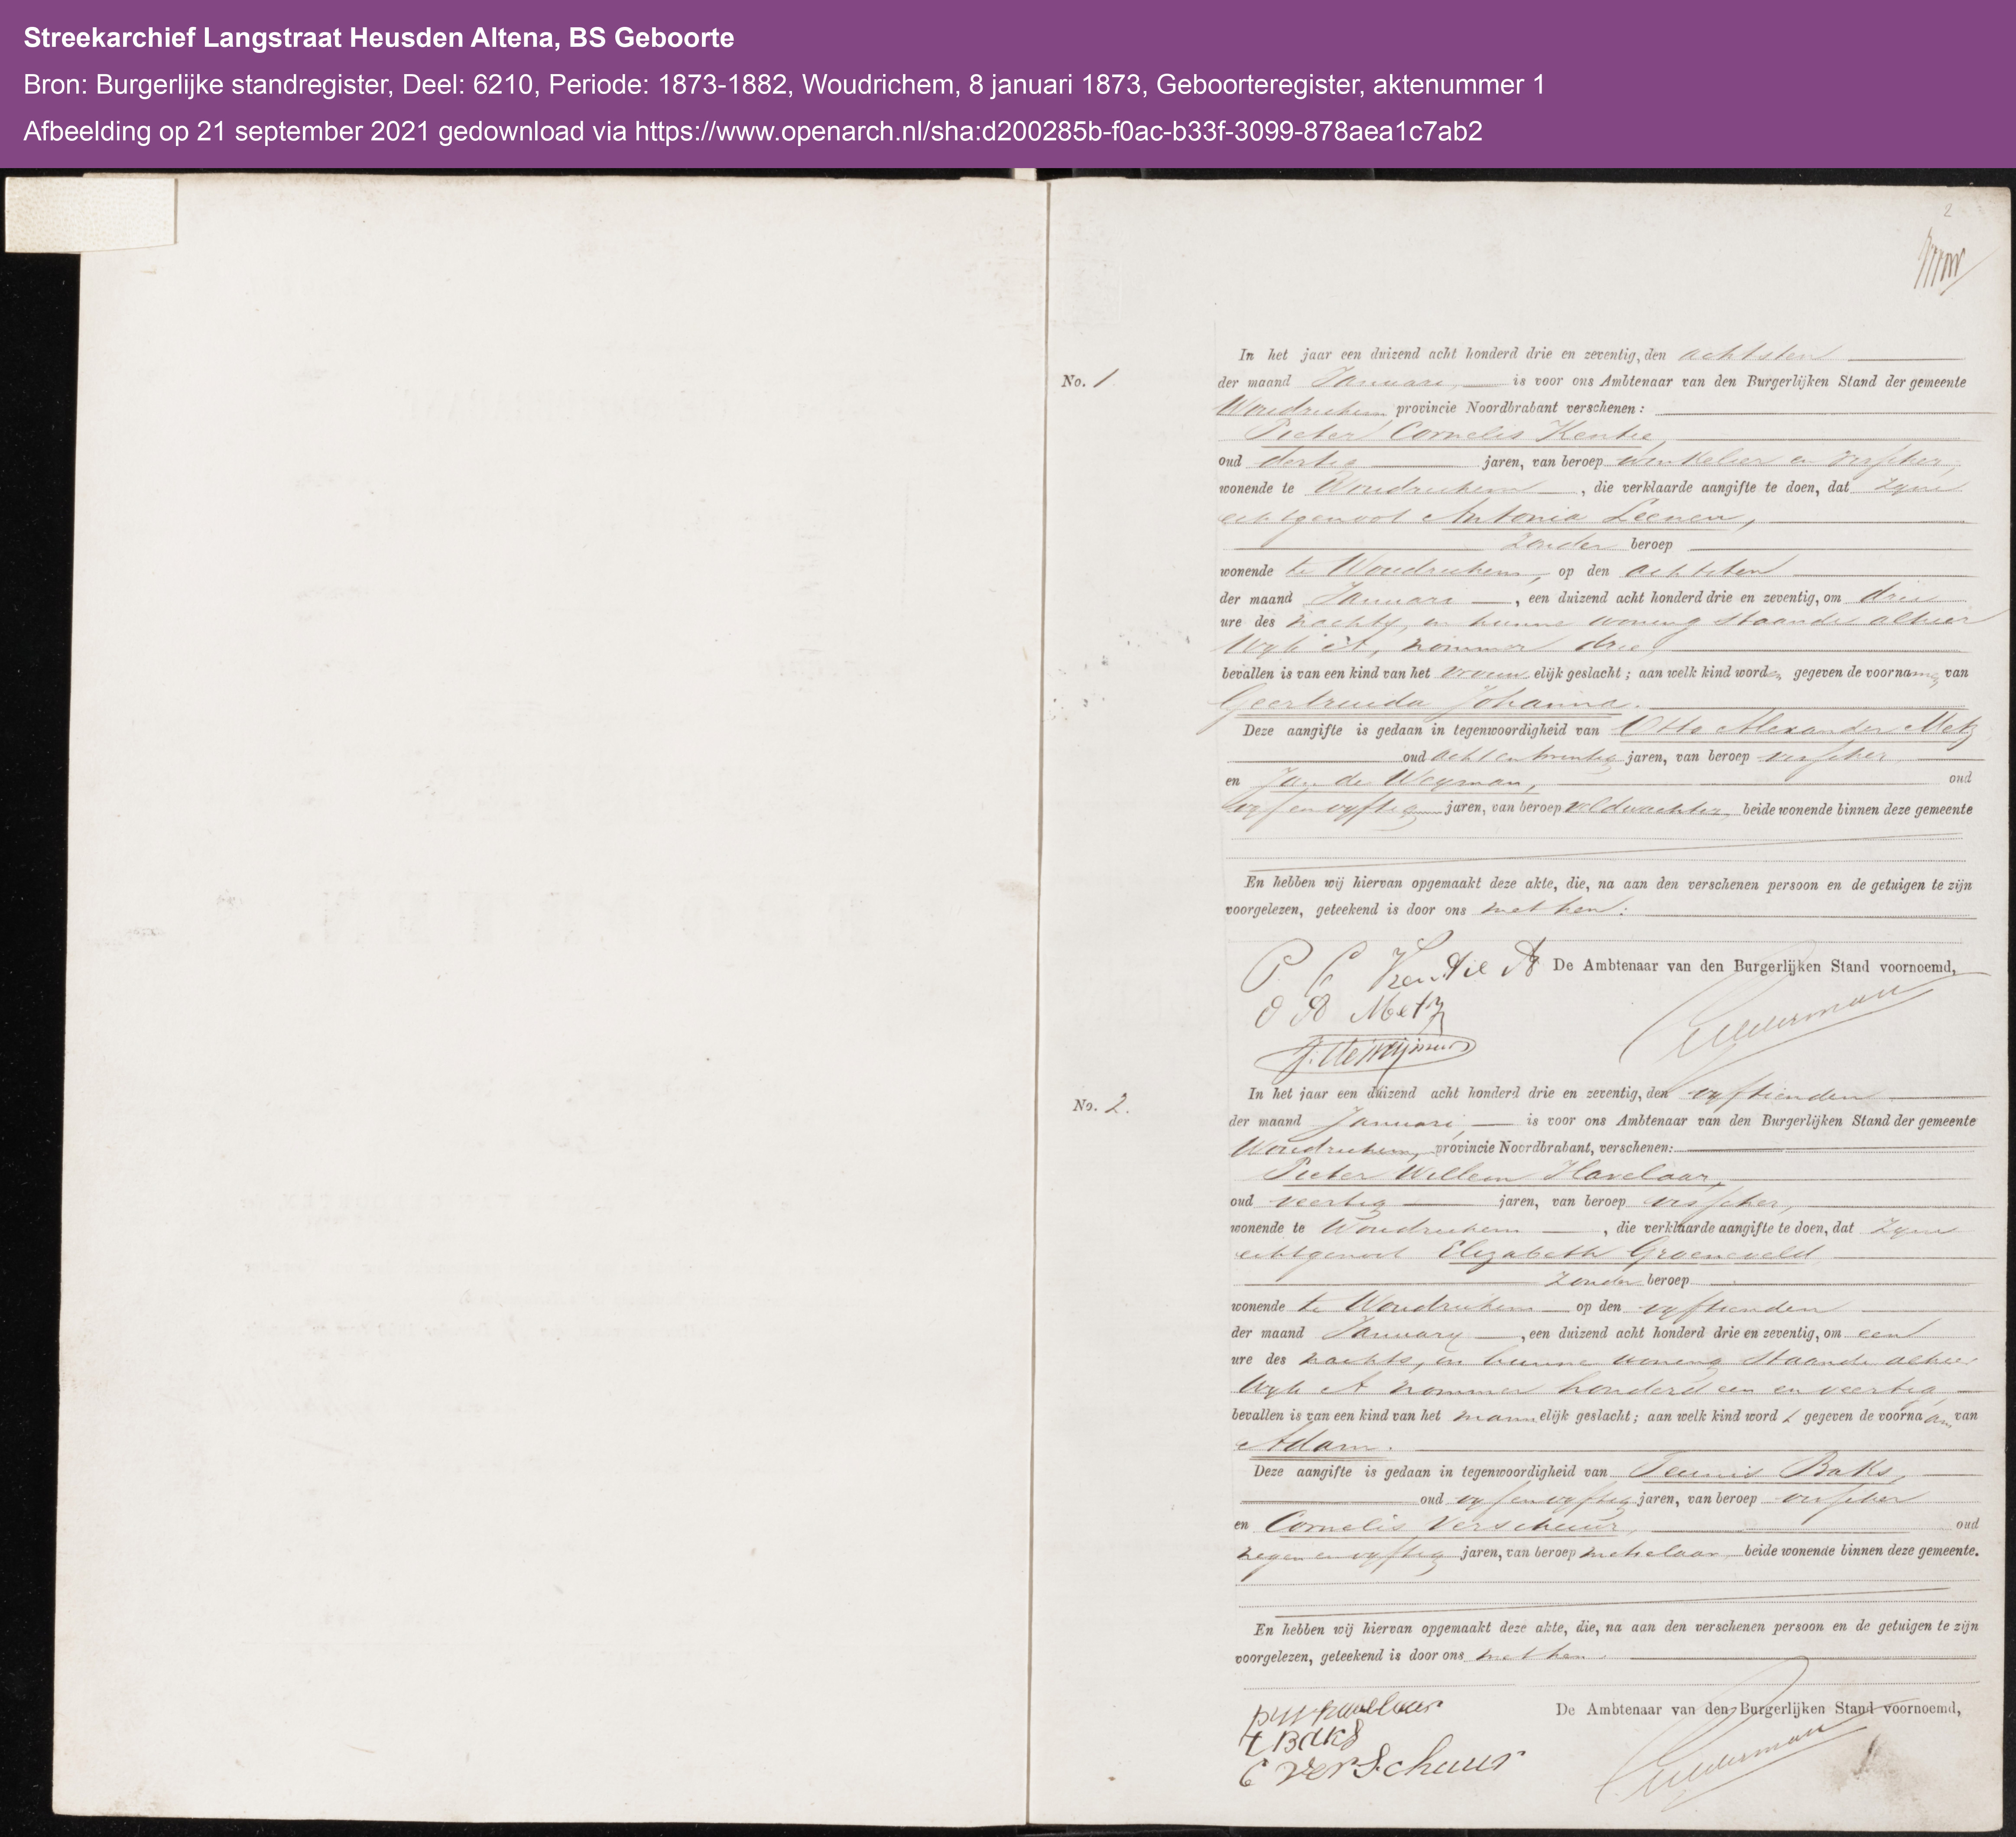 Streekarchief Langstraat Heusden Altena, BS Geboorte
Bron: Burgerlijke standregister, Deel: 6210, Periode: 1873-1882, Woudrichem, 8 januari 1873, Geboorteregister, aktenummer 1
Afbeelding op 21 september 2021 gedownload via https://www.openarch.nl/sha:d200285b-f0ac-b33f-3099-878aea1c7ab2
2
In het jaar een duizend acht honderd drie en zeventig, den achtsten
No. 1.
der maand Januari, is voor ons Ambtenaar van den Burgerlijken Stand der gemeente
Woudrichem provincie Noordbrabant verschenen:
Pieter Cornelis Kentie,
oud dertig jaren, van beroep winkelier en visscher,
wonende te Woudrichem, die verklaarde aangifte te doen, dat zyne
echtgenoot Antonia Leenen,
zonder beroep
wonende te Woudrichem, op den achtsten
der maand Januari, een duizend acht honderd drie en zeventig, om drie
ure des nachts, in hunne woning staande alhier
Wyk A, nommer drie,
bevallen is van een kind van het vrouwelijk geslacht; aan welk kind worden gegeven de voornamen van
Geertruida Johanna.
Deze aangifte is gedaan in tegenwoordigheid van Otto Alexander Metz
oud acht en twintig jaren, van beroep visscher
en Jan de Weyman, oud
vyf en vyftig jaren, van beroep veldwachter, beide wonende binnen deze gemeente
En hebben wij hiervan opgemaakt deze akte, die, na aan den verschenen persoon en de getuigen te zijn
voorgelezen, geteekend is door ons met hen.
P C Kentie De Ambtenaar van den Burgerlijken Stand voornoemd,
O A Metz
In het jaar een duizend acht honderd drie en zeventig, den vyftienden
No. 2.
der maand Januari, is voor ons Ambtenaar van den Burgerlijken Stand der gemeente
Woudrichem, provincie Noordbrabant, verschenen:
Pieter Willem Havelaar,
oud veertig jaren, van beroep visscher,
wonende te Woudrichem, die verklaarde aangifte te doen, dat zyne
echtgenoot Elizabeth Groeneveld
zonder beroep
wonende te Woudrichem op den vyftienden
der maand January, een duizend acht honderd drie en zeventig, om een
ure des nachts, in hunne woning staande alhier
Wyk A nommer honderd een en veertig
bevallen is van een kind van het mannelijk geslacht; aan welk kind wordt gegeven de voornaam van
Adam.
Deze aangifte is gedaan in tegenwoordigheid van Teunis Baks,
oud vyf en vyftig jaren, van beroep visscher
en Cornelis Verschuur, oud
negen en vyftig jaren, van beroep metselaar beide wonende binnen deze gemeente.
En hebben wij hiervan opgemaakt deze akte, die, na aan den verschenen persoon en de getuigen te zijn
voorgelezen, geteekend is door ons met hen.
De Ambtenaar van den Burgerlijken Stand voornoemd,
P W Havelaar
t Baks
C Verschuur